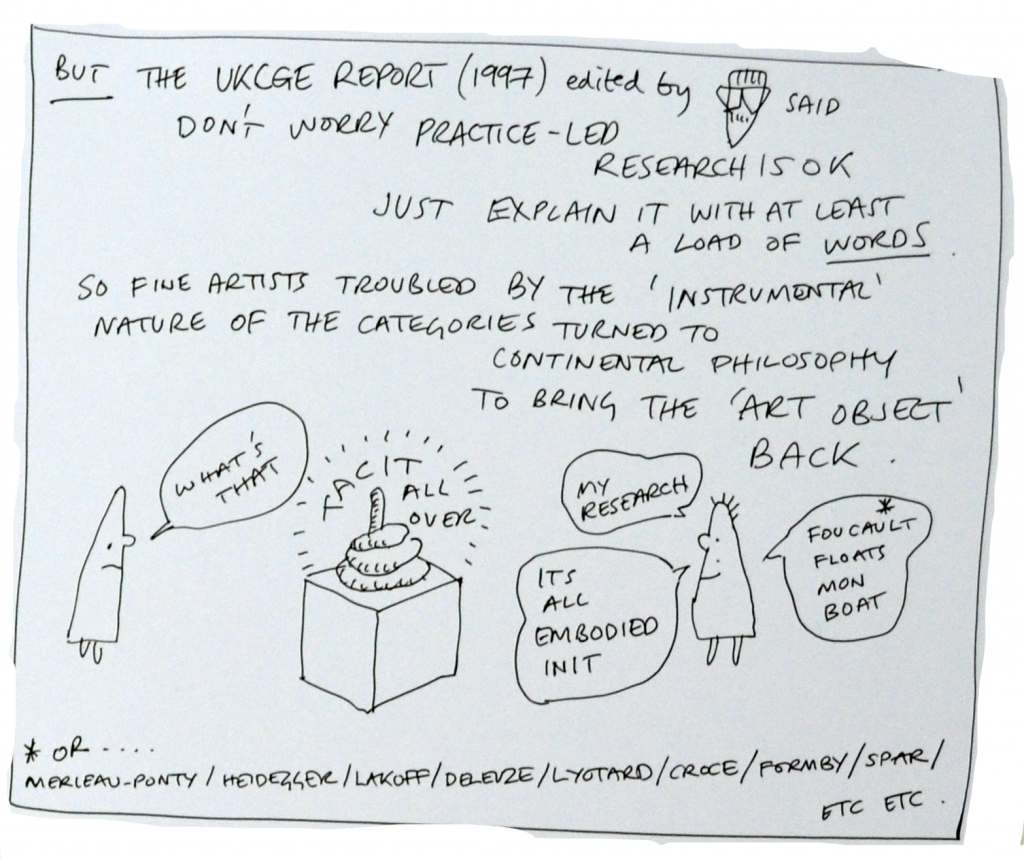 BUT THE UKCGE REPORT (1997) edited by SAID
DON'T WORRY PRACTICE-LED
RESEARCH IS OK
JUST EXPLAIN IT WITH AT LEAST
A LOAD OF WORDS.
SO FINE ARTISTS TROUBLED BY THE 'INSTRUMENTAL'
NATURE OF THE CATEGORIES TURNED TO
CONTINENTAL PHILOSOPHY
TO BRING THE 'ART OBJECT'
BACK.
WHAT'S
THAT
TACIT
ALL
OVER
MY
RESEARCH
ITS
ALL
EMBODIED
INIT
*
FOUCAULT
FLOATS
MON
BOAT
* OR .....
MERLEAU-PONTY/HEIDEGGER/LAKOFF/DELEUZE/LYOTARD/CROCE/FORMBY/SPAR/
ETC ETC.